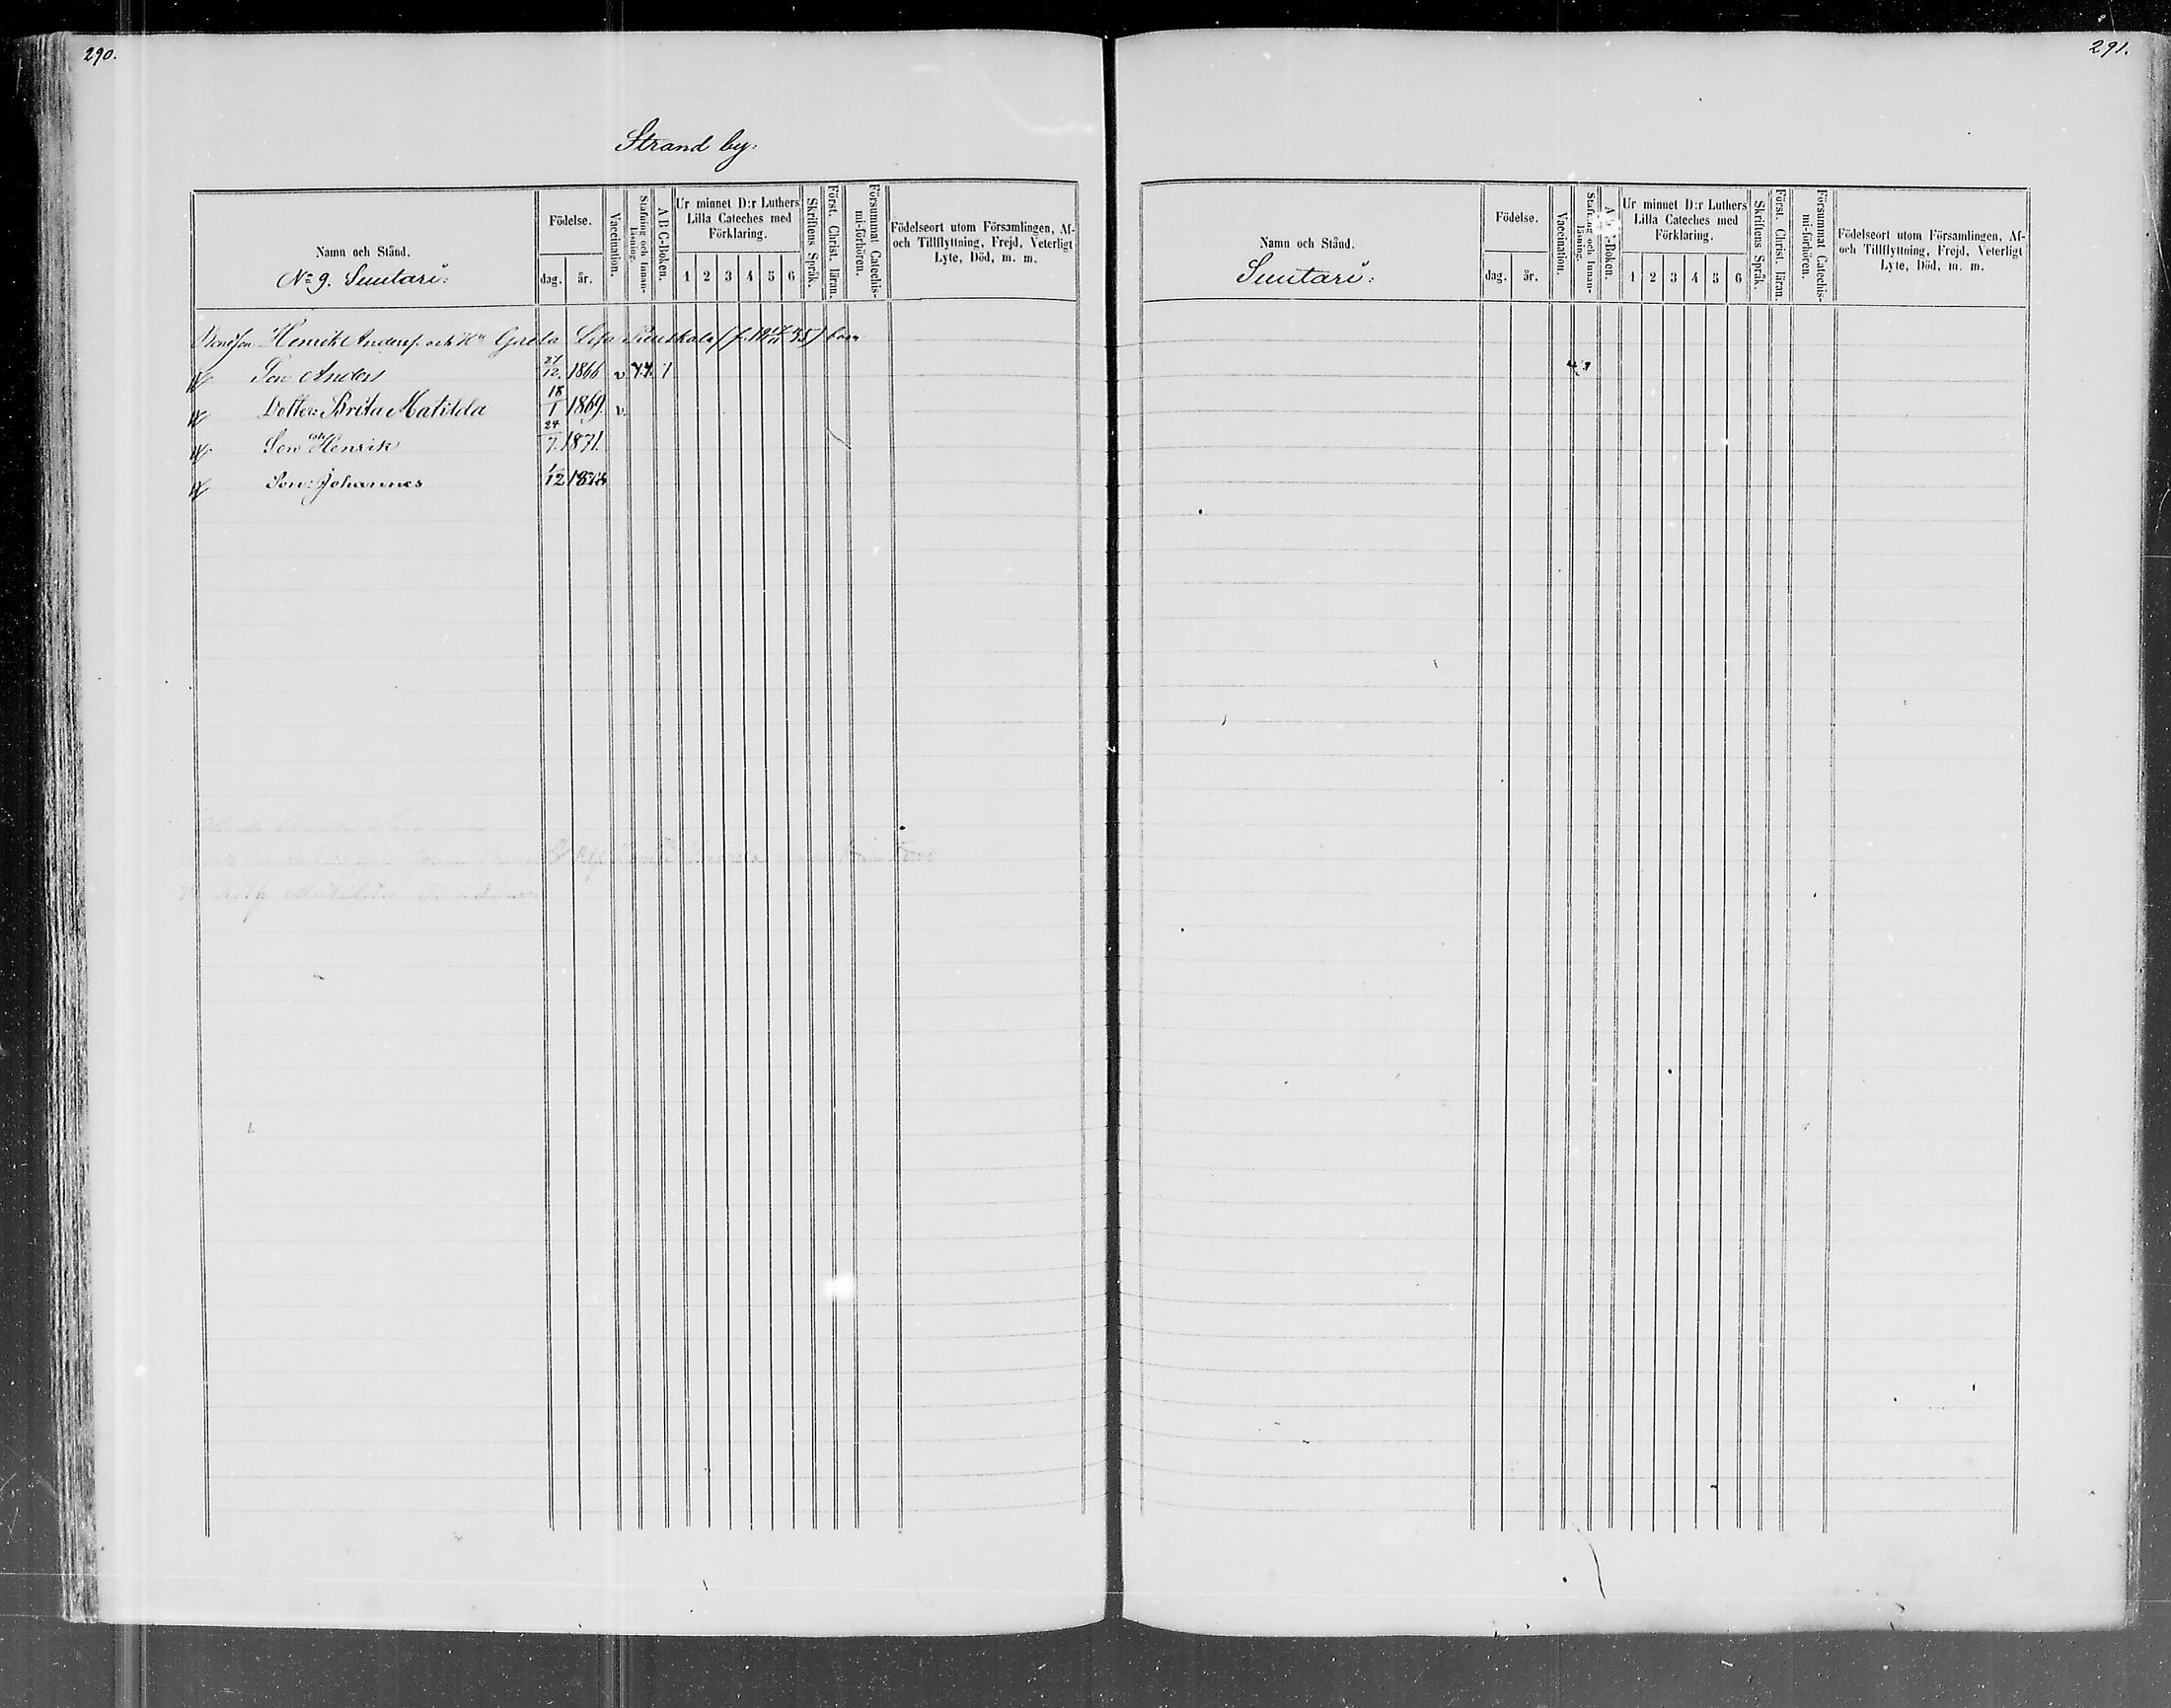 290.
Strand by:
Namn och Stånd.
No 9. Suutari:
Födelse.
dag. år.
Vaccination.
Stafning och Innan-
läsning.
A B C-Boken.
Ur minnet D:r Luthers
Lilla Cateches med
Förklaring.
1 2 3 4 5 6
Skriftens Språk.
Först. Christ. läran.
Försummat Catechis-
mi-förhören.
Födelseort utom Församlingen, Af-
och Tillflyttning, Frejd, Veterligt
Lyte, Död, m. m.
Henrik Andersf. och Greta Lisa barn
Son Anders 27/12. 1866 v 1
Dotter: Brita Matilda 18/1 1869. v.
Son Henrik 24/7. 1871.
Son: Johannes 1/12
291.
Namn och Stånd.
Suutari:
Födelse.
dag. år.
Vaccination.
Stafning och Innan-
läsning.
A B C-Boken.
Ur minnet D:r Luthers
Lilla Cateches med
Förklaring.
1 2 3 4 5 6
Skriftens Språk.
Först. Christ. läran.
Försummat Catechis-
mi-förhören.
Födelseort utom Församlingen, Af-
och Tillflyttning, Frejd, Veterligt
Lyte, Död, m. m.